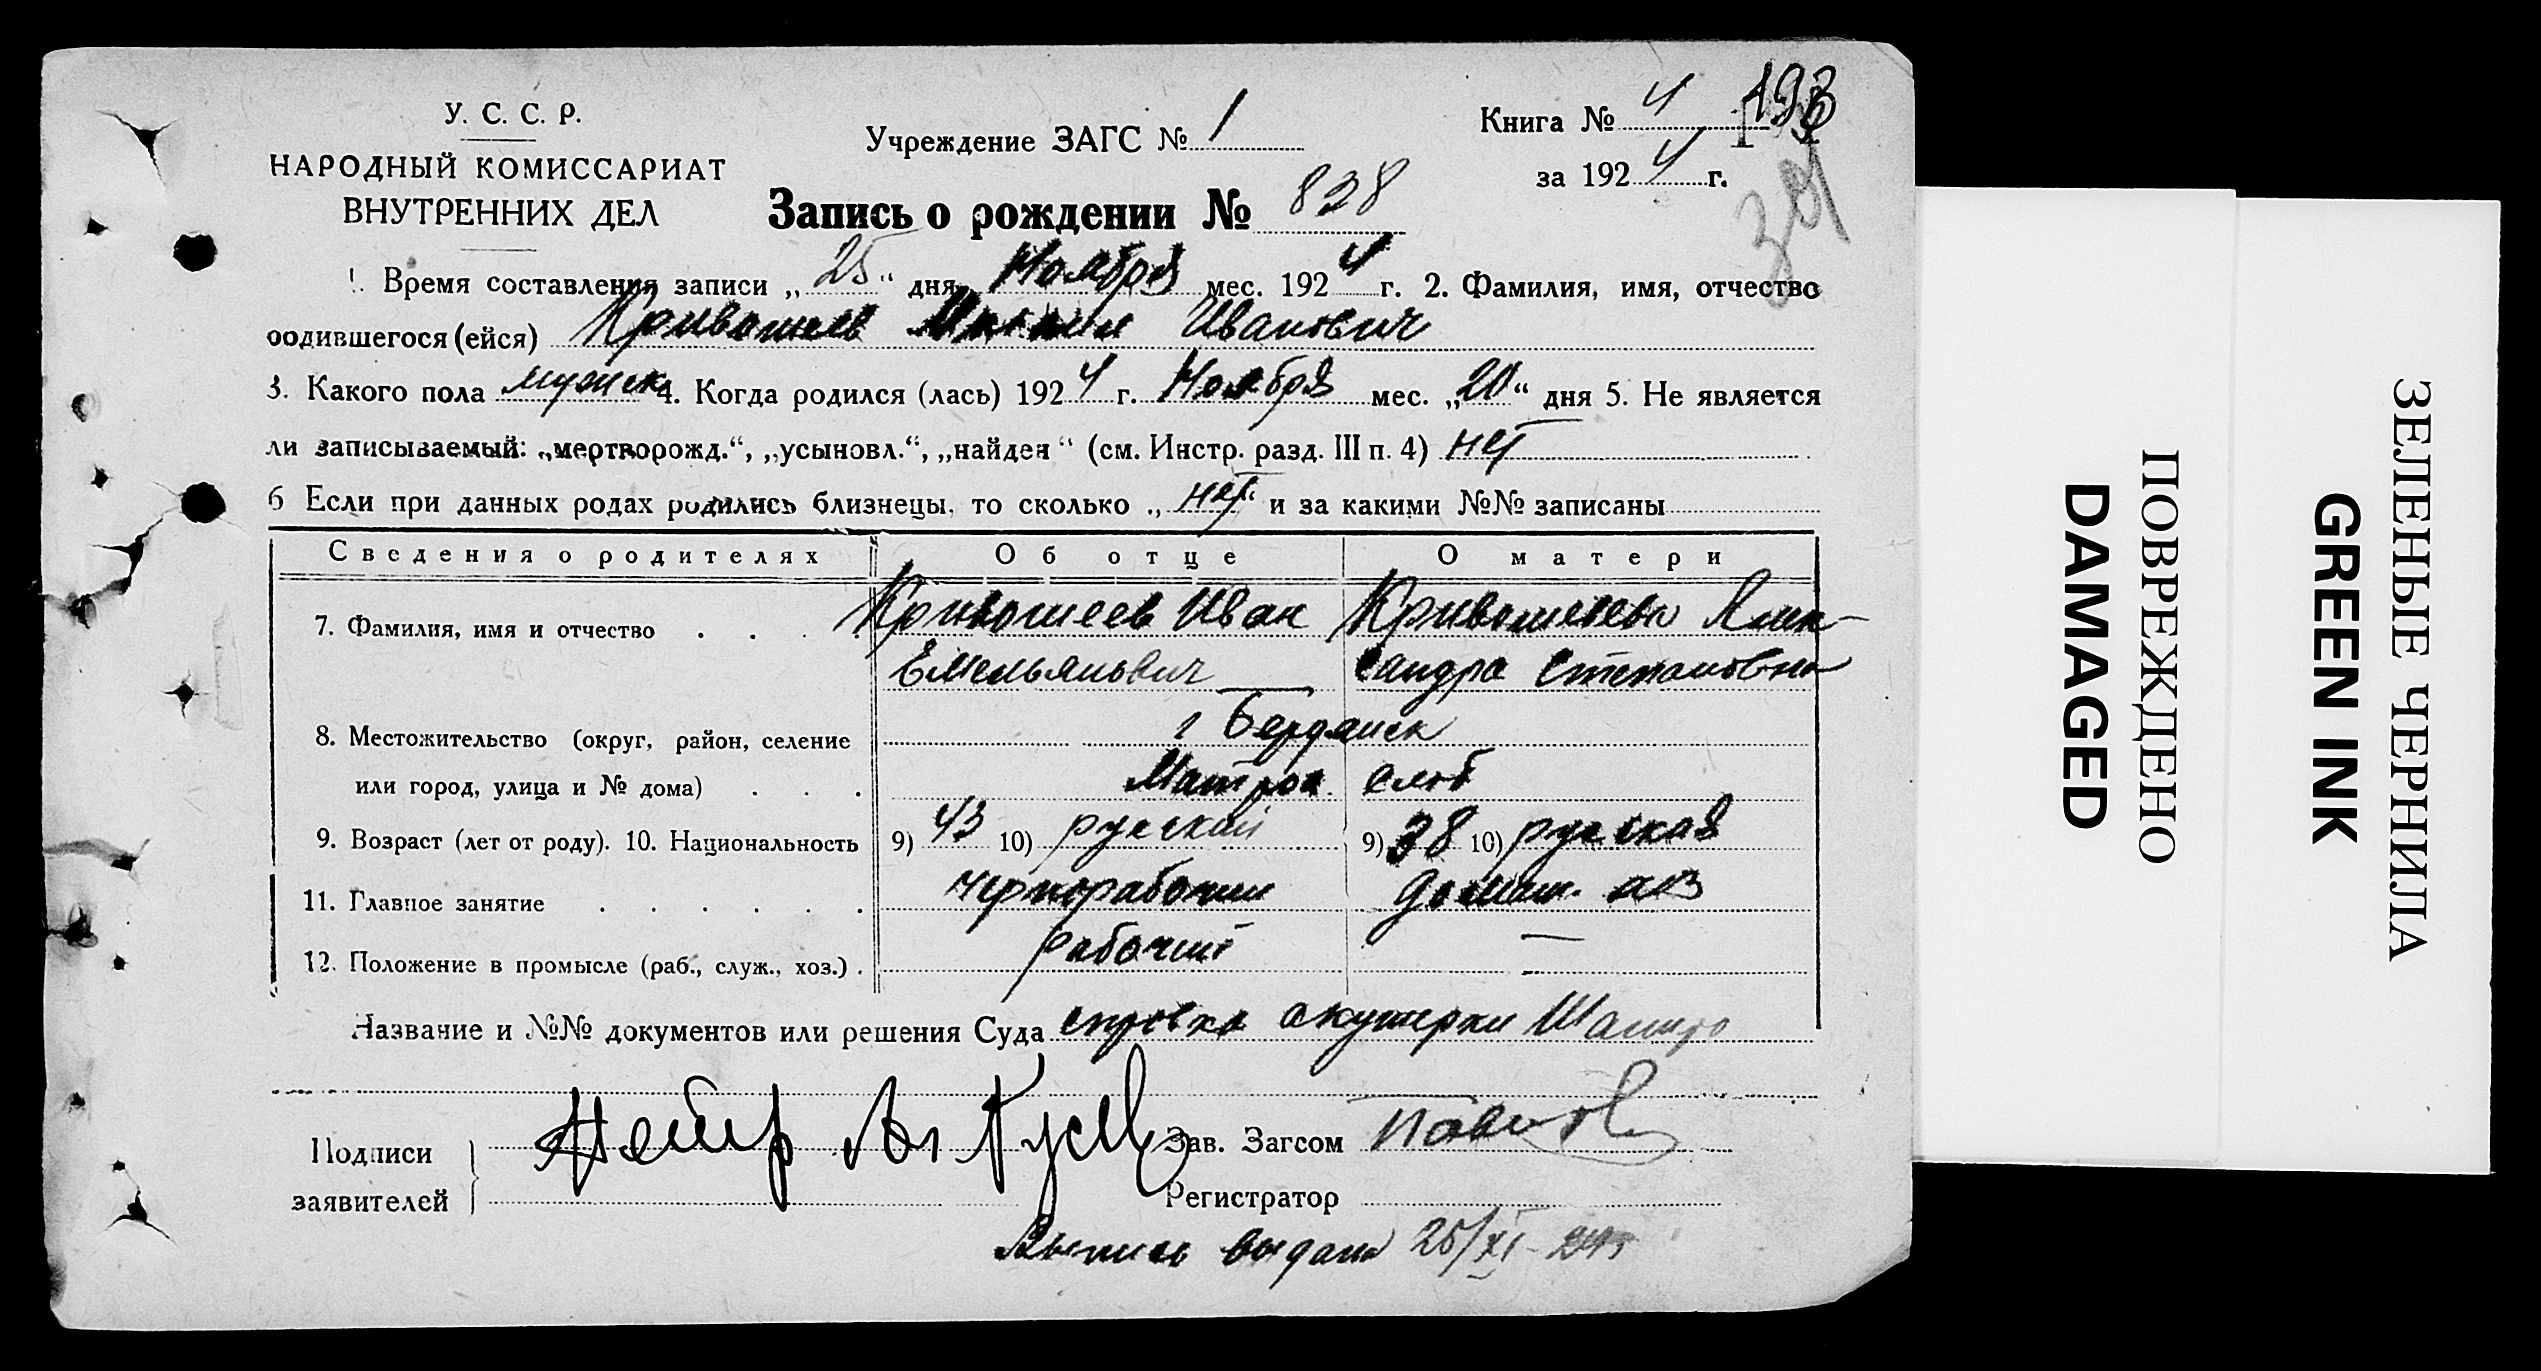 У. С. С. Р.
НАРОДНЫЙ КОМИССАРИАТ
ВНУТРЕННИХ ДЕЛ
Учреждение ЗАГС № 1
Книга № 4 193
за 1924 г.
Запись о рождении № 838
1. Время составления записи „25“ дня Ноября мес. 1924 г. 2. Фамилия, имя, отчество
родившегося (ейся) Кривошеев Иванович
3. Какого пола мужск 4. Когда родился (лась) 1924 г. Ноября мес. „20“ дня 5. Не является
ли записываемый: „мертворожд.“, „усыновл.“, „найден“ (см. Инстр. разд. III п. 4) нет
6 Если при данных родах родились близнецы, то сколько „нет“ и за какими №№ записаны
Сведения о родителях Об отце О матери
7. Фамилия, имя и отчество . . . . Кривошеев Иван Кривошеева Алек-
Емельянович сандра Степановна
8. Местожительство (округ, район, селение г Бердянск
или город, улица и № дома) . . . Матрос. слоб
9. Возраст (лет от роду). 10. Национальность 9) 43 10) русский 9) 38 10) русская
11. Главное занятие . . . . . . чернорабочий домаш. хоз
12. Положение в промысле (раб., служ., хоз.) . рабочий —
Название и №№ документов или решения Суда справка акушерки Шапиро
Подписи
заявителей
Зав. Загсом
Регистратор
Выпись выдана 25/XI-24
ЗЕЛЕНЫЕ ЧЕРНИЛА
GREEN INK
ПОВРЕЖДЕНО
DAMAGED